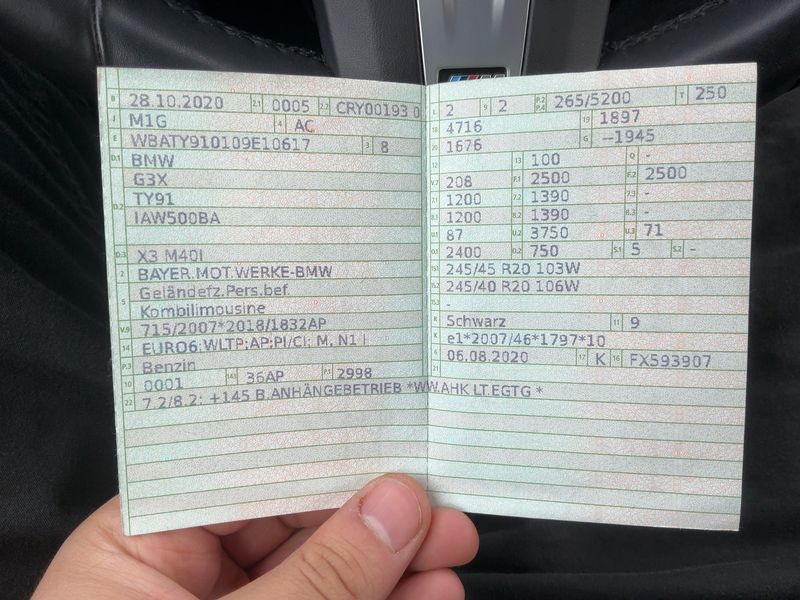 B 28.10.2020 2.1 0005 2.2 CRY00193 0
J M1G 4 AC
E WBATY910109E10617 3 8
D.1 BMW
D.2 G3X
TY91
IAW500BA
D.3 X3 M40I
2 BAYER.MOT.WERKE-BMW
5 Geländefz.Pers.bef.
Kombilimousine
V.9 715/2007*2018/1832AP
14 EURO6;WLTP;AP;PI/CI; M, N1 I
P.3 Benzin
10 0001 14.1 36AP P.1 2998
22 7.2/8.2: +145 B.ANHÄNGEBETRIEB *WW.AHK LT.EGTG *
L 2 9 2 P.2 P.4 265/5200 T 250
18 4716 19 1897
20 1676 G —1945
12 13 100 Q -
V.7 208 F.1 2500 F.2 2500
7.1 1200 7.2 1390 7.3 -
8.1 1200 8.2 1390 8.3 -
U.1 87 U.2 3750 U.3 71
O.1 2400 O.2 750 S.1 5 S.2 -
15.1 245/45 R20 103W
15.2 245/40 R20 106W
15.3 -
R Schwarz 11 9
K e1*2007/46*1797*10
6 06.08.2020 17 K 16 FX593907
21